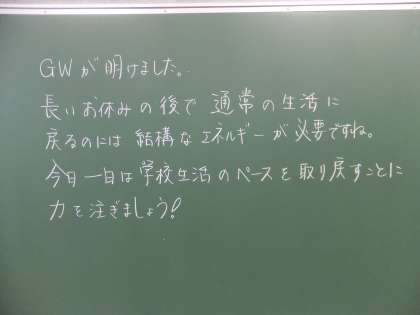 GWが明けました。
長いお休みの後で通常の生活に
戻るのには結構なエネルギーが必要ですね。
今日一日は学校生活のペースを取り戻すことに
力を注ぎましょう!